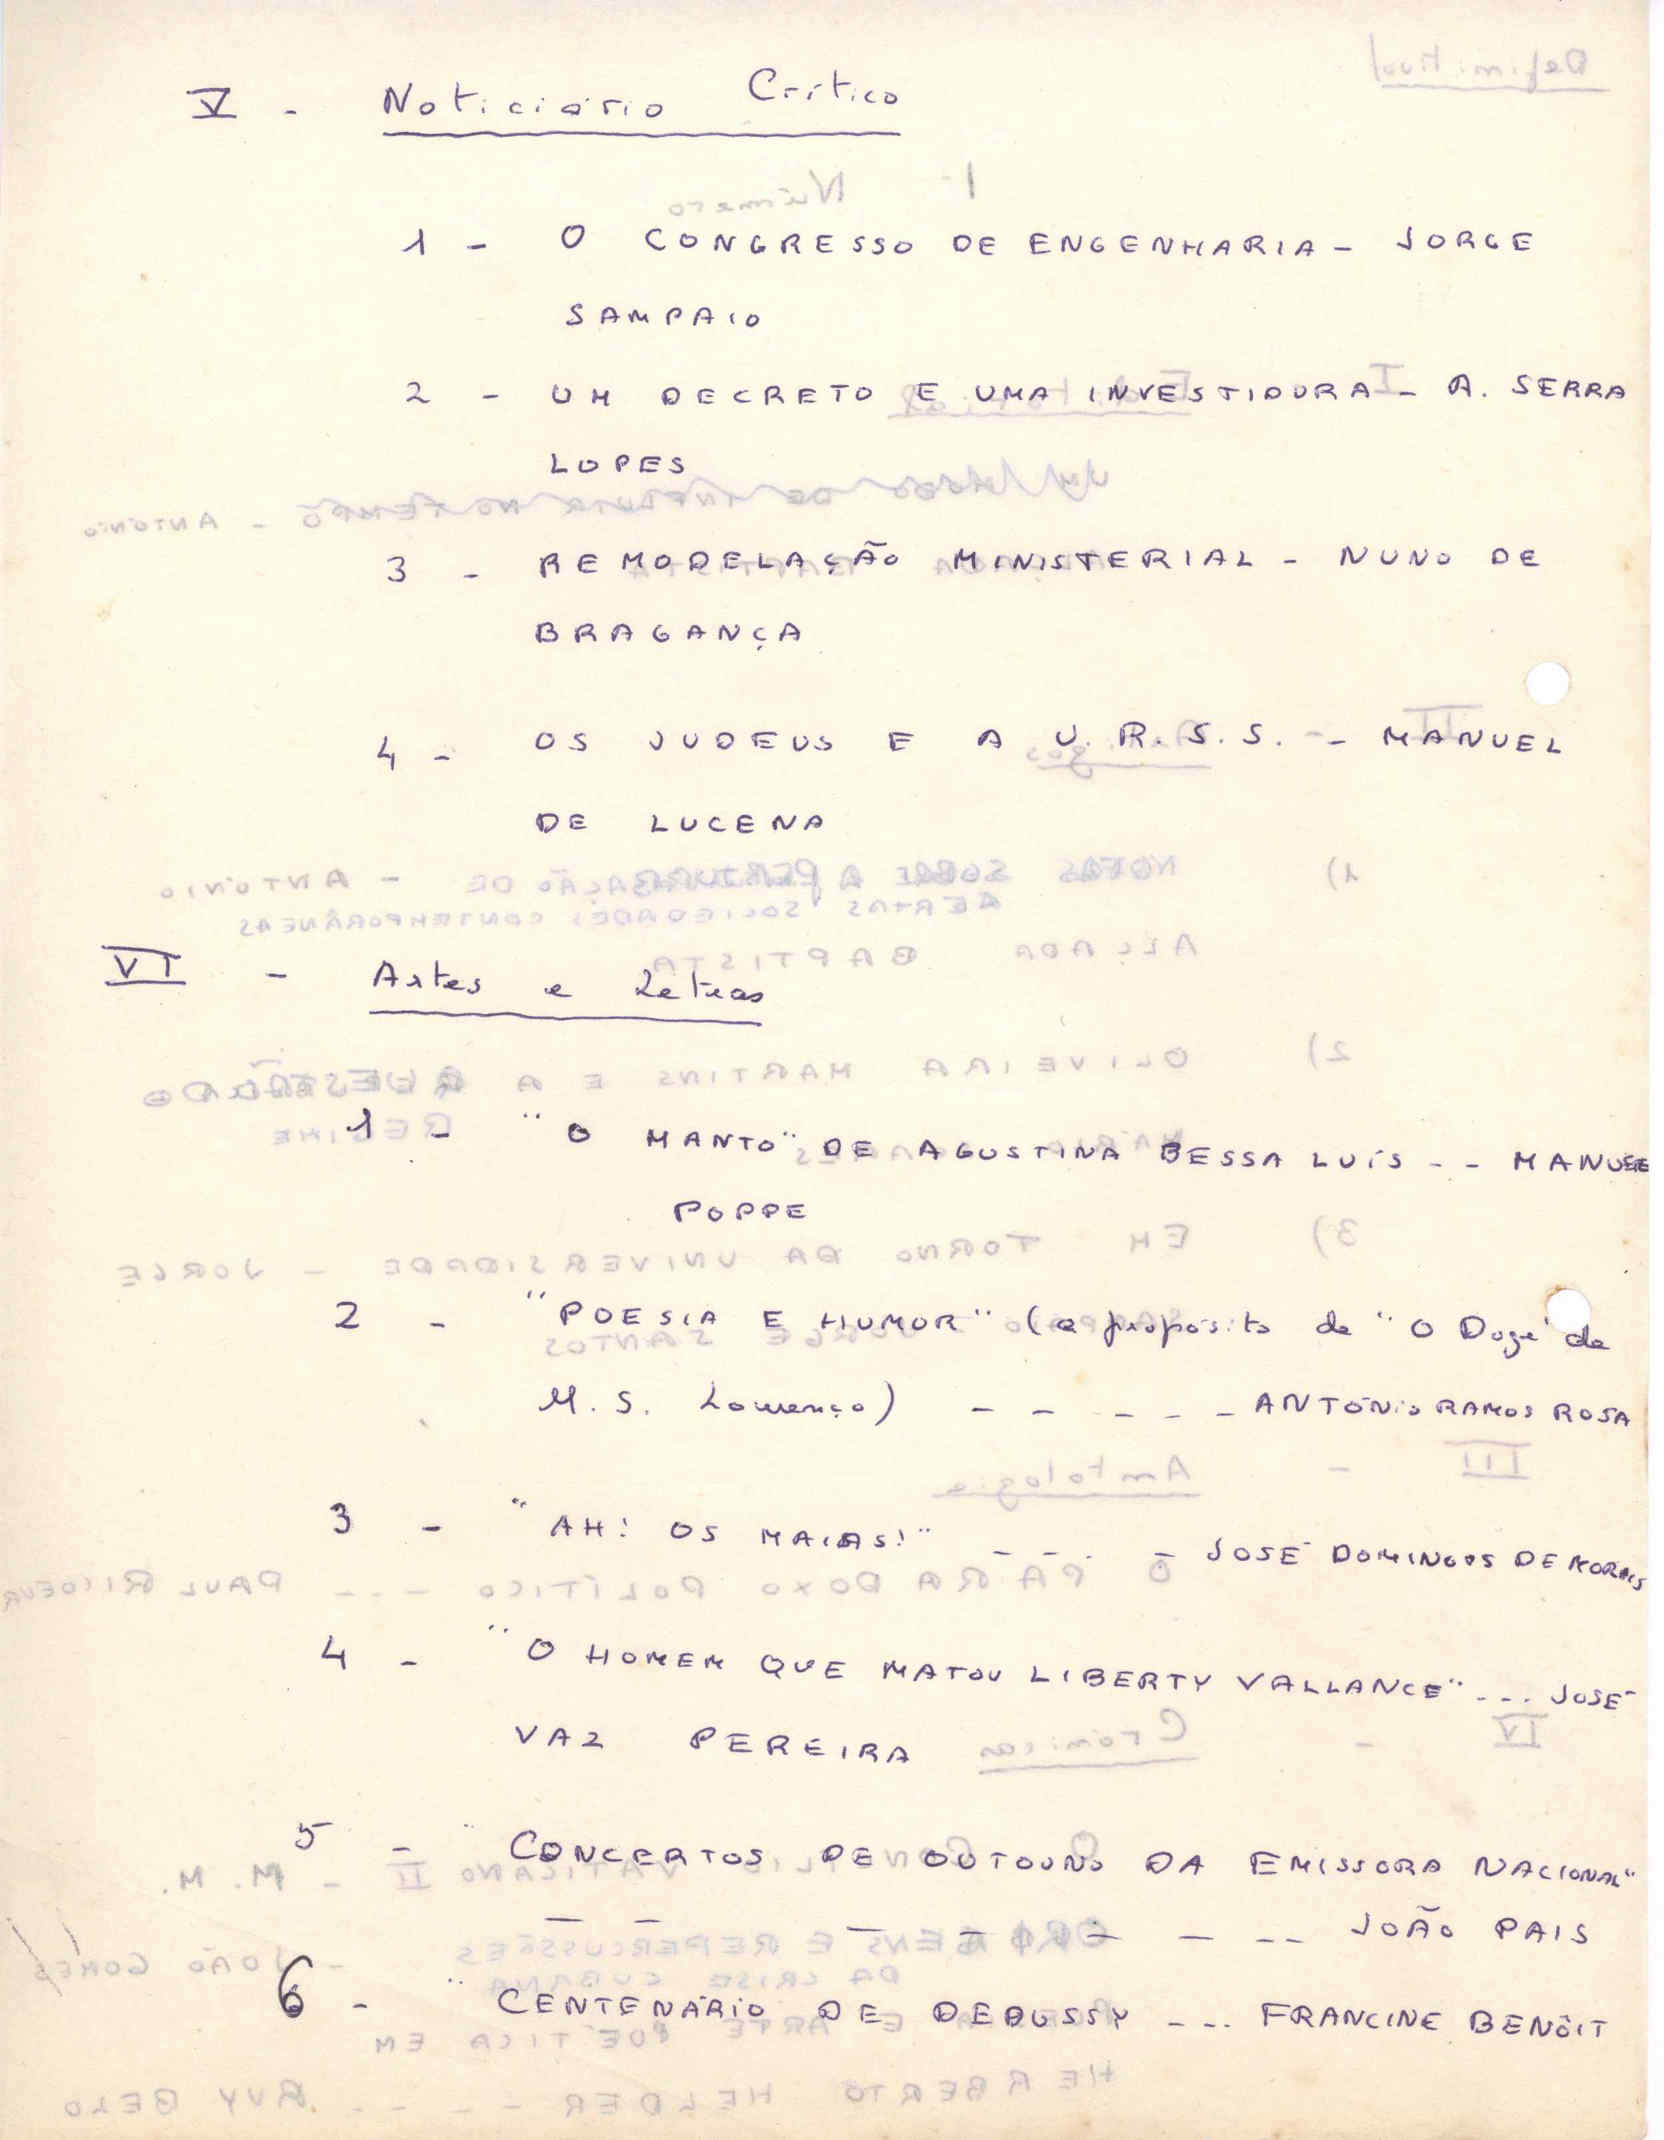 V - Noticiário Crítico
1 - O CONGRESSO DE ENGENHARIA - JORGE
SAMPAIO
2 - UM DECRETO E UMA INVESTIDURA - A. SERRA
LOPES
3 - REMODELAÇÃO MINISTERIAL - NUNO DE
BRAGANÇA
4 - OS JUDEUS E A U.R.S.S. - MANUEL
DE LUCENA
VI - Artes e Letras
1 - "O MANTO" DE AGUSTINA BESSA LUÍS -- MANUEL
POPPE
2 - "POESIA E HUMOR" (a propósito de "O Doge" de
M. S. Lourenço) - - - - - ANTÓNIO RAMOS ROSA
3 - "AH! OS MAIAS!" - - - - JOSÉ DOMINGOS DE MORAIS
4 - "O HOMEM QUE MATOU LIBERTY VALLANCE" --- JOSÉ
VAZ PEREIRA
5 - "CONCERTOS DE OUTOUNO DA EMISSORA NACIONAL"
- - - - - - -- JOÃO PAIS
6 - "CENTENÁRIO DE DEBUSSY --- FRANCINE BENÔIT